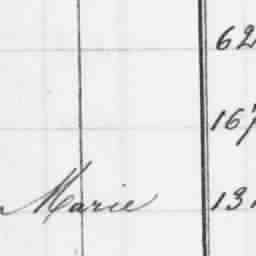 62
167
Marie 131